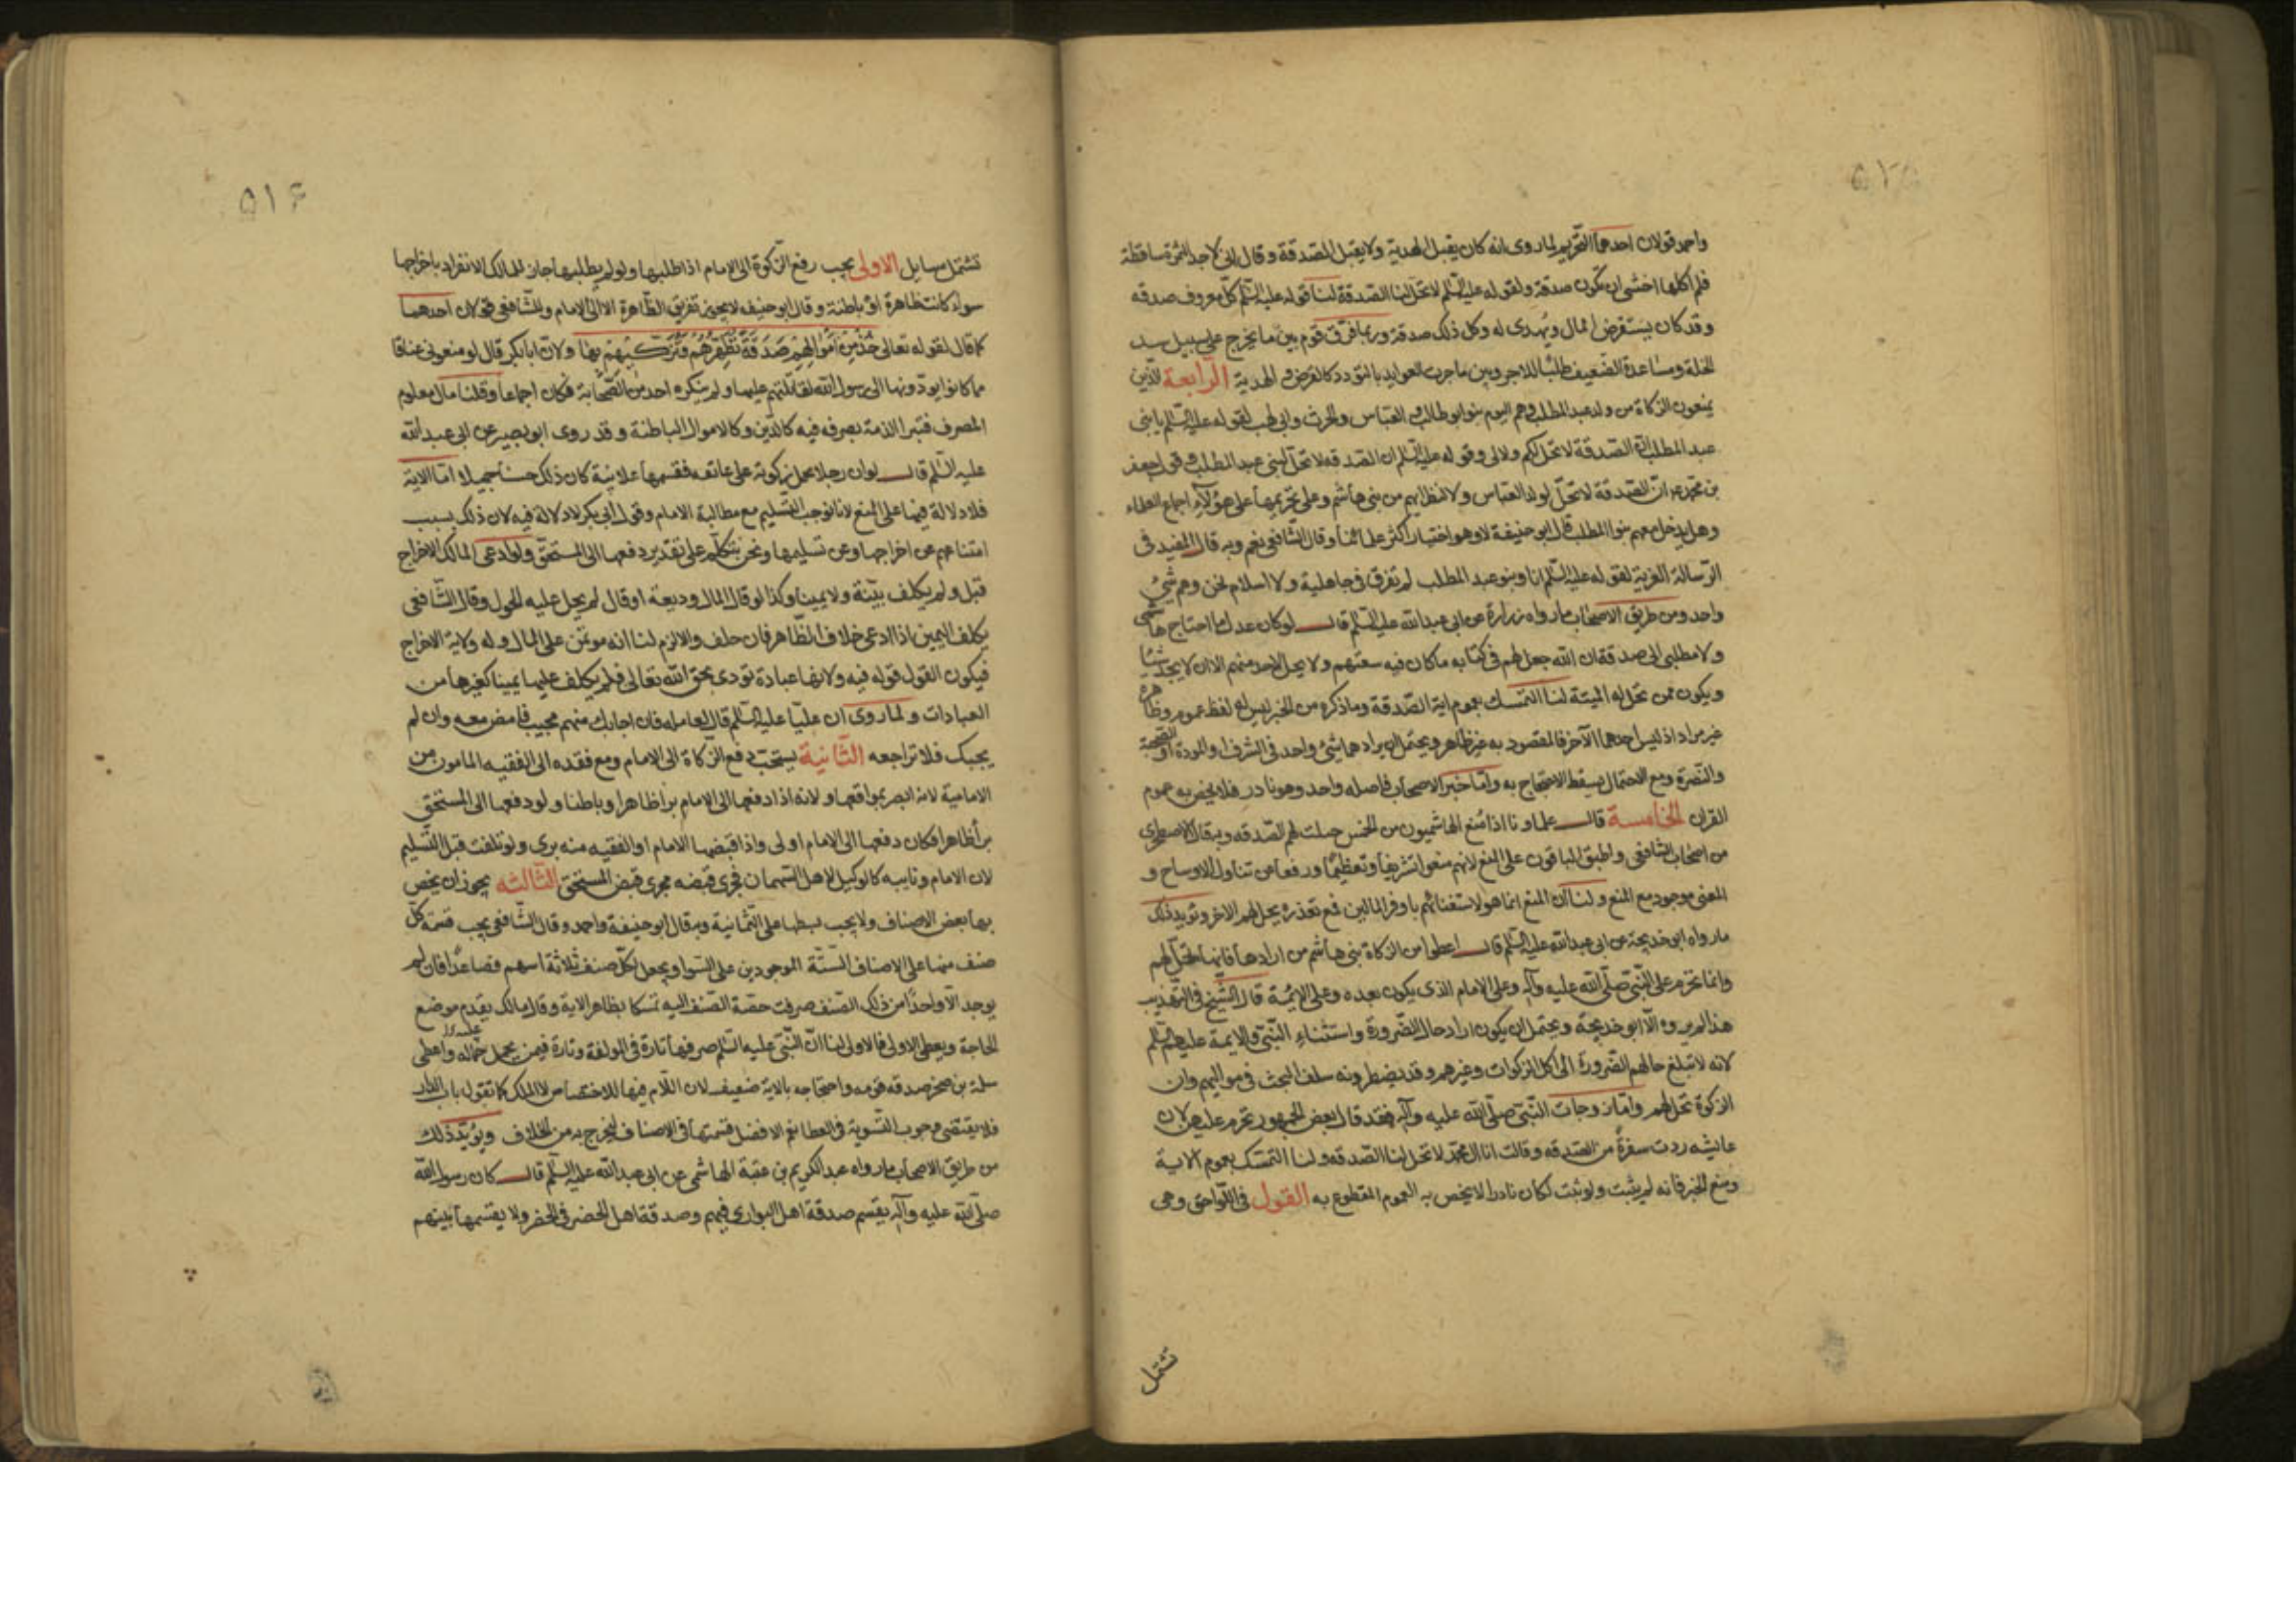 ٥١٥
واحمد قولان احدهما التحريم لما روى انه كان يقبل الهدية ولا يقبل الصدقة وقال انى لاجد التمرة ساقطة
فلم اكلها اخشى ان تكون صدقة ولقوله عليه السلم لا تحل لنا الصدقة لنا قوله عليه السلم كل معروف صدقه
وقد كان يستقرض المال ويهدى له وكل ذلك صدقة وربما فرق قوم بين ما يخرج على سبيل سد
الخلة ومساعدة الضعيف طلبًا للاجر وبين ما جرت العوايد بالتودد كالقرض والهدية الرابعة الذين
يمنعون الزكاة من ولد عبد المطلب وهم اليوم بنو ابو طالب والعباس والحرث وابى لهب لقوله عليه السلم يا بنى
عبد المطلب ان الصدقة لا تحل لكم ولا لى وقوله عليه السلم ان الصدقه لا تحل لبنى عبد المطلب وقول جعفر
بن محمد عم ان الصدقة لا تحل لولد العباس ولا لنظرايهم من بنى هاشم وعلى تحريمها على هؤلآء اجماع العلماء
وهل يدخل معهم بنوا المطلب قال ابو حنيفة لا وهو اختيار اكثر علمائنا وقال الشافعى نعم وبه قال المفيد فى
الرسالة الغرية لقوله عليه السلم انا وبنو عبد المطلب لم نفرق فى جاهلية ولا اسلام نحن وهم شىء
واحد ومن طريق الاصحاب ما رواه زرارة عن ابى عبد الله عليه السلم قال لو كان عدل ما احتاج هاشمى
ولا مطلبى الى صدقة ان الله جعل لهم فى كتابه ما كان فيه سعتهم ولا يحل لاحد منهم الا ان لا يجد شيئا
ويكون ممن تحل له الميتة لنا التمسك بعموم اية الصدقة وما ذكره من الخبر ليس له لفظ عموم وظاهره
غير مراد اذ ليس احدهما الآخر فالمقصود به غير ظاهر ويحتمل ان يراد هما شىء واحد فى الشرف او المودة او الصحبة
والنصرة ومع الاحتمال يسقط الاحتجاج به واما خبر الاصحاب فاصله واحد وهو نادر فلا يخص به عموم
القران الخامسة قال علماونا اذا منع الهاشميون من الخمس حلت لهم الصدقه وبه قال الاصطخرى
من اصحاب الشافعى واطبق الباقون على المنع لانهم منعوا تشريفا وتعظيمًا ورفعا عن تناول الاوساخ و
المعنى موجود مع المنع ولنا ان المنع انما هو لاستغنائهم باوفر المالين فمع تعذره يحل لهم الاخر ويؤيد ذلك
ما رواه ابو خديجة عن ابى عبد الله عليه السلم قال اعطوا من الزكاة بنى هاشم من ارادها فانها تحل لهم
وانما تحرم على النبى صلى الله عليه وآله وعلى الامام الذى يكون بعده وعلى الايمة قال الشيخ فى التهذيب
هذا لم يروه الا ابو خديجة ويحتمل ان يكون اراد حال الضرورة واستثناء النبى والايمة عليهم السلم
لانه لا تبلغ حالهم الضرورة الى اكل الزكوات وغيرهم وقد يضطرونه سلف البحث فى مواليهم وان
الزكوة تحل لهم واما زوجات النبى صلى الله عليه وآله فقد قال بعض الجمهور تحرم عليهن لان
عايشه ردت سفرة من الصدقه وقالت انا ال محمد لا تحل لنا الصدقه ولنا التمسك بعموم الاية
ومنع الخبر فانه لم يثبت ولو ثبت لكان نادرا لا يخص به العموم المقطوع به القول فى اللواحق وهى
تشتمل
٥١۶
تشتمل مسايل الاولى يجب رفع الزكوة الى الامام اذا طلبها ولو لم يطلبها جاز للمالك الانفراد باخراجها
سواء كانت ظاهرة او باطنة وقال ابو حنيفه لا يجوز تفريق الظاهرة الا الى الامام وللشافعى قولان احدهما
كما قال لقوله تعالى خُذْ مِنْ اَمْوَالِهِمْ صَدَقَةً تُطَهِّرُهُمْ وَتُزَكِّيهِمْ بِهَا ولان ابا بكر قال لو منعونى عناقا
ما كانوا يودونها الى رسول الله لقاتلتهم عليها ولم ينكره احد من الصحابة فكان اجماعا وقلنا مال معلوم
المصرف فتبرا الذمة بصرفه فيه كالدين وكالاموال الباطنة وقد روى ابو بصير عن ابى عبد الله
عليه السلم قال لو ان رجلا حمل زكوته على عاتقه فقسمها علانية كان ذلك حسنا جميلا اما الاية
فلا دلالة فيها على المنع لانا نوجب التسليم مع مطالبة الامام وقول ابى بكر لا دلالة فيه لان ذلك بسبب
امتناعهم من اخراجها وعن تسليمها ونحن نتكلم على تقدير دفعها الى المستحق ولو ادعى المالك الاخراج
قبل ولم يكلف بينة ولا يمينا وكذا لو قال المال وديعة او قال لم يحل عليه الحول وقال الشافعى
يكلف اليمين اذا ادعى خلاف الظاهر فان حلف والا لزم لنا انه موتمن على المال وله ولاية الاخراج
فيكون القول قوله فيه ولانها عبادة تودى بحق الله تعالى فلم يكلف عليها يمينا كغيرها من
العبادات ولما روى ان عليا عليه السلم قال لعامله فان اجابك منهم مجيب فامض معه وان لم
يجبك فلا تراجعه الثانية يستحب دفع الزكاة الى الامام ومع فقده الى الفقيه المامون من
الامامية لانه ابصر بمواقعها ولانه اذا دفعها الى الامام برا ظاهرا وباطنا ولو دفعها الى المستحق
برا ظاهرا فكان دفعها الى الامام اولى واذا قبضها الامام او الفقيه منه برى ولو تلفت قبل التسليم
لان الامام ونايبه كالوكيل لاهل السهمان فجرى قبضه مجرى قبض المستحق الثالثه يجوز ان يخص
بها بعض الاصناف ولا يجب بسطها على الثمانية وبه قال ابو حنيفة واحمد وقال الشافعى يجب قسمة كل
صنف منها على الاصناف الستة الموجودين على السوا ويجعل لكل صنف ثلاثة اسهم فصاعدًا فان لم
يوجد الا واحدًا من ذلك الصنف صرفت حصة الصنف اليه تمسكا بظاهر الاية وقال مالك يقدم موضع
الحاجة ويعطى الاولى فالاولى لنا ان النبى عليه السلم صرفها تارة فى المولفة وتارة فيمن يحمل حماله واعطى
سلمة بن صخر صدقه قومه واحتجاجه بالاية ضعيف لان اللام فيها للاختصاص لا الملك كما تقول باب الدار
فلا يقتضى وجوب التسوية فى العطا نعم الافضل قسمتها فى الاصناف ليخرج به من الخلاف ويؤيد ذلك
من طريق الاصحاب ما رواه عبد الكريم بن عتبة الهاشمى عن ابى عبد الله عليه السلم قال كان رسول الله
صلى الله عليه وآله يقسم صدقة اهل البوادى فيهم وصدقة اهل الحضر فى الحضر ولا يقسمها بينهم